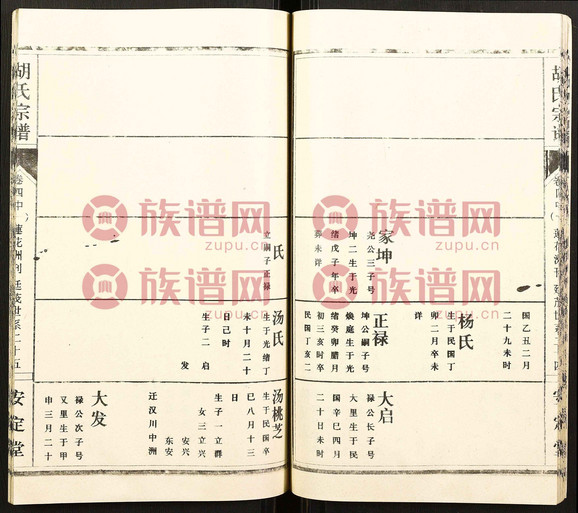 胡氏宗谱
卷四中
国乙丑二月
二十九未时
杨氏
生于民国丁
卯二月卒未
详
家坤
尧公三子号
坤二生于光
绪戊子年卒
葬未详
正禄
坤公嗣子号
焕庭生于光
绪癸卯腊月
初三亥时卒
民国丁亥二
大启
禄公长子号
大里生于民
国辛巳四月
二十日未时
氏
立嗣子正禄
汤氏
生于光绪丁
未十月二十
日己时
生子二 启
发
汤桃芝
生于民国卒
巳八月十三
日
生子一立群
女三立兴
安兴
东安
迁汉川中洲
大发
禄公次子号
又里生于甲
申三月二十
胡氏宗谱
卷四中
莲花洲刘廷茂世系二十五
安定堂
族谱网
zupu.cn
族谱网
zupu.cn
族谱网
zupu.cn
族谱网
zupu.cn